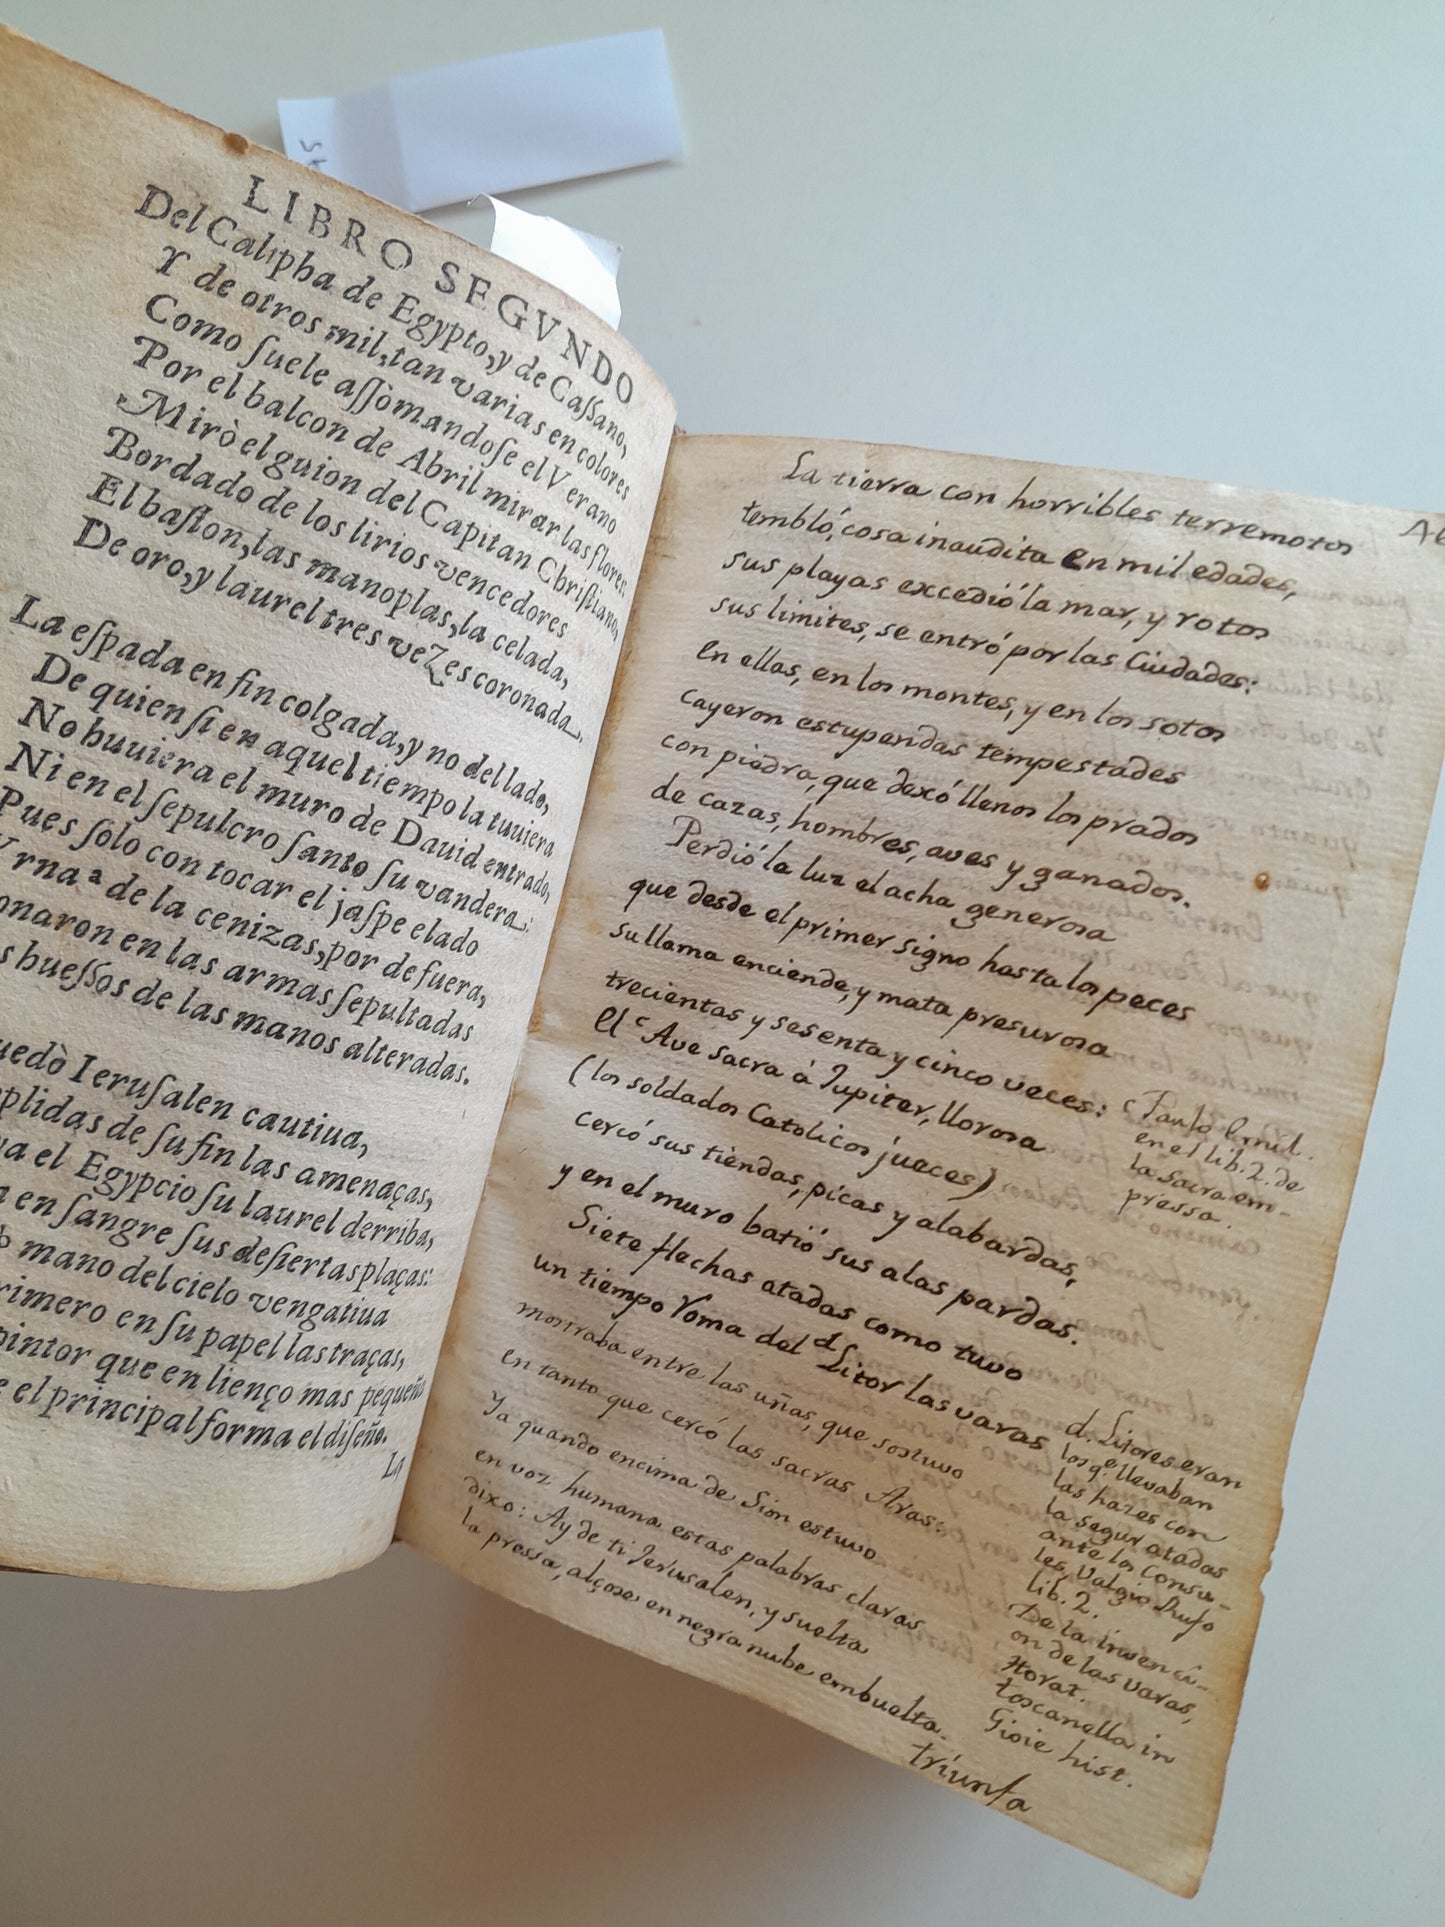 LIBRO SEGVNDO
Del Calipha de Egypto, y de Caſſano,
Y de otros mil, tan varias en colores
Como ſuele aſſòmandoſe el Verano
Por el balcon de Abril mirar las flores.
Mirò el guion del Capitan Chriſtiano,
Bordado de los lirios vencedores
El baſton, las manoplas, la celada,
De oro, y laurel tres vezes coronada.
La eſpada en fin colgada, y no del lado,
De quien ſi en aquel tiempo la tuuiera
No huuiera el muro de Dauid entrado,
Ni en el ſepulcro ſanto ſu vandera:
Pues ſolo con tocar el jaſpe elado
Vrna a de la cenizas, por de fuera,
onaron en las armas ſepultadas
s hueſſos de las manos alteradas.
uedò Ieruſalen cautiua,
plidas de ſu fin las amenaças,
a el Egypcio ſu laurel derriba,
a en ſangre ſus deſiertas plaças:
b mano del cielo vengatiua
rimero en ſu papel las traças,
pintor que en lienço mas pequeño
e el principal forma el diſeño.
La
La tierra con horribles terremotos
tembló, cosa inaudita en mil edades,
sus playas excedió la mar, y rotos
sus limites, se entró por las Ciudades:
en ellas, en los montes, y en los sotos
cayeron estupendas tempestades
con piedra, que dexó llenos los prados
de cazas, hombres, aves y ganados.
Perdió la luz el acha generosa
que desde el primer signo hasta los peces
su llama enciende, y mata presurosa
trecientas y sesenta y cinco veces:
el c Ave sacra á Jupiter, llorosa
(los soldados Catolicos jueces)
cercó sus tiendas, picas y alabardas,
y en el muro batió sus alas pardas.
Siete flechas atadas como tuvo
un tiempo Roma del d Litor las varas
mostraba entre las uñas, que sostuvo
en tanto que cercó las sacras Aras:
Ya quando encima de Sion estuvo
en voz humana estas palabras claras
dixo: Ay de ti Jerusalen, y suelta
la pressa, alçose en negra nube embuelta.
triunfa
c Paulo Emil.
en el lib. 2. de
la sacra em-
pressa.
d. Litores eran
los q.e llevaban
las hazes con
la segur atadas
ante los Consu-
les, Valgio Rufo
lib. 2.
De la inven ci-
on de las varas,
Horat.
toscanella in
Gioie hist.